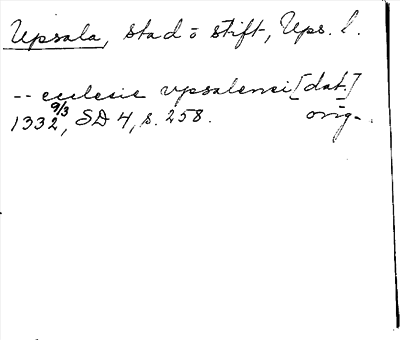 Upsala, stad o stift, Ups. l.
-- ecclesie vpsalensi [dat.]
1332 9/3, SD 4, s. 258. orig.